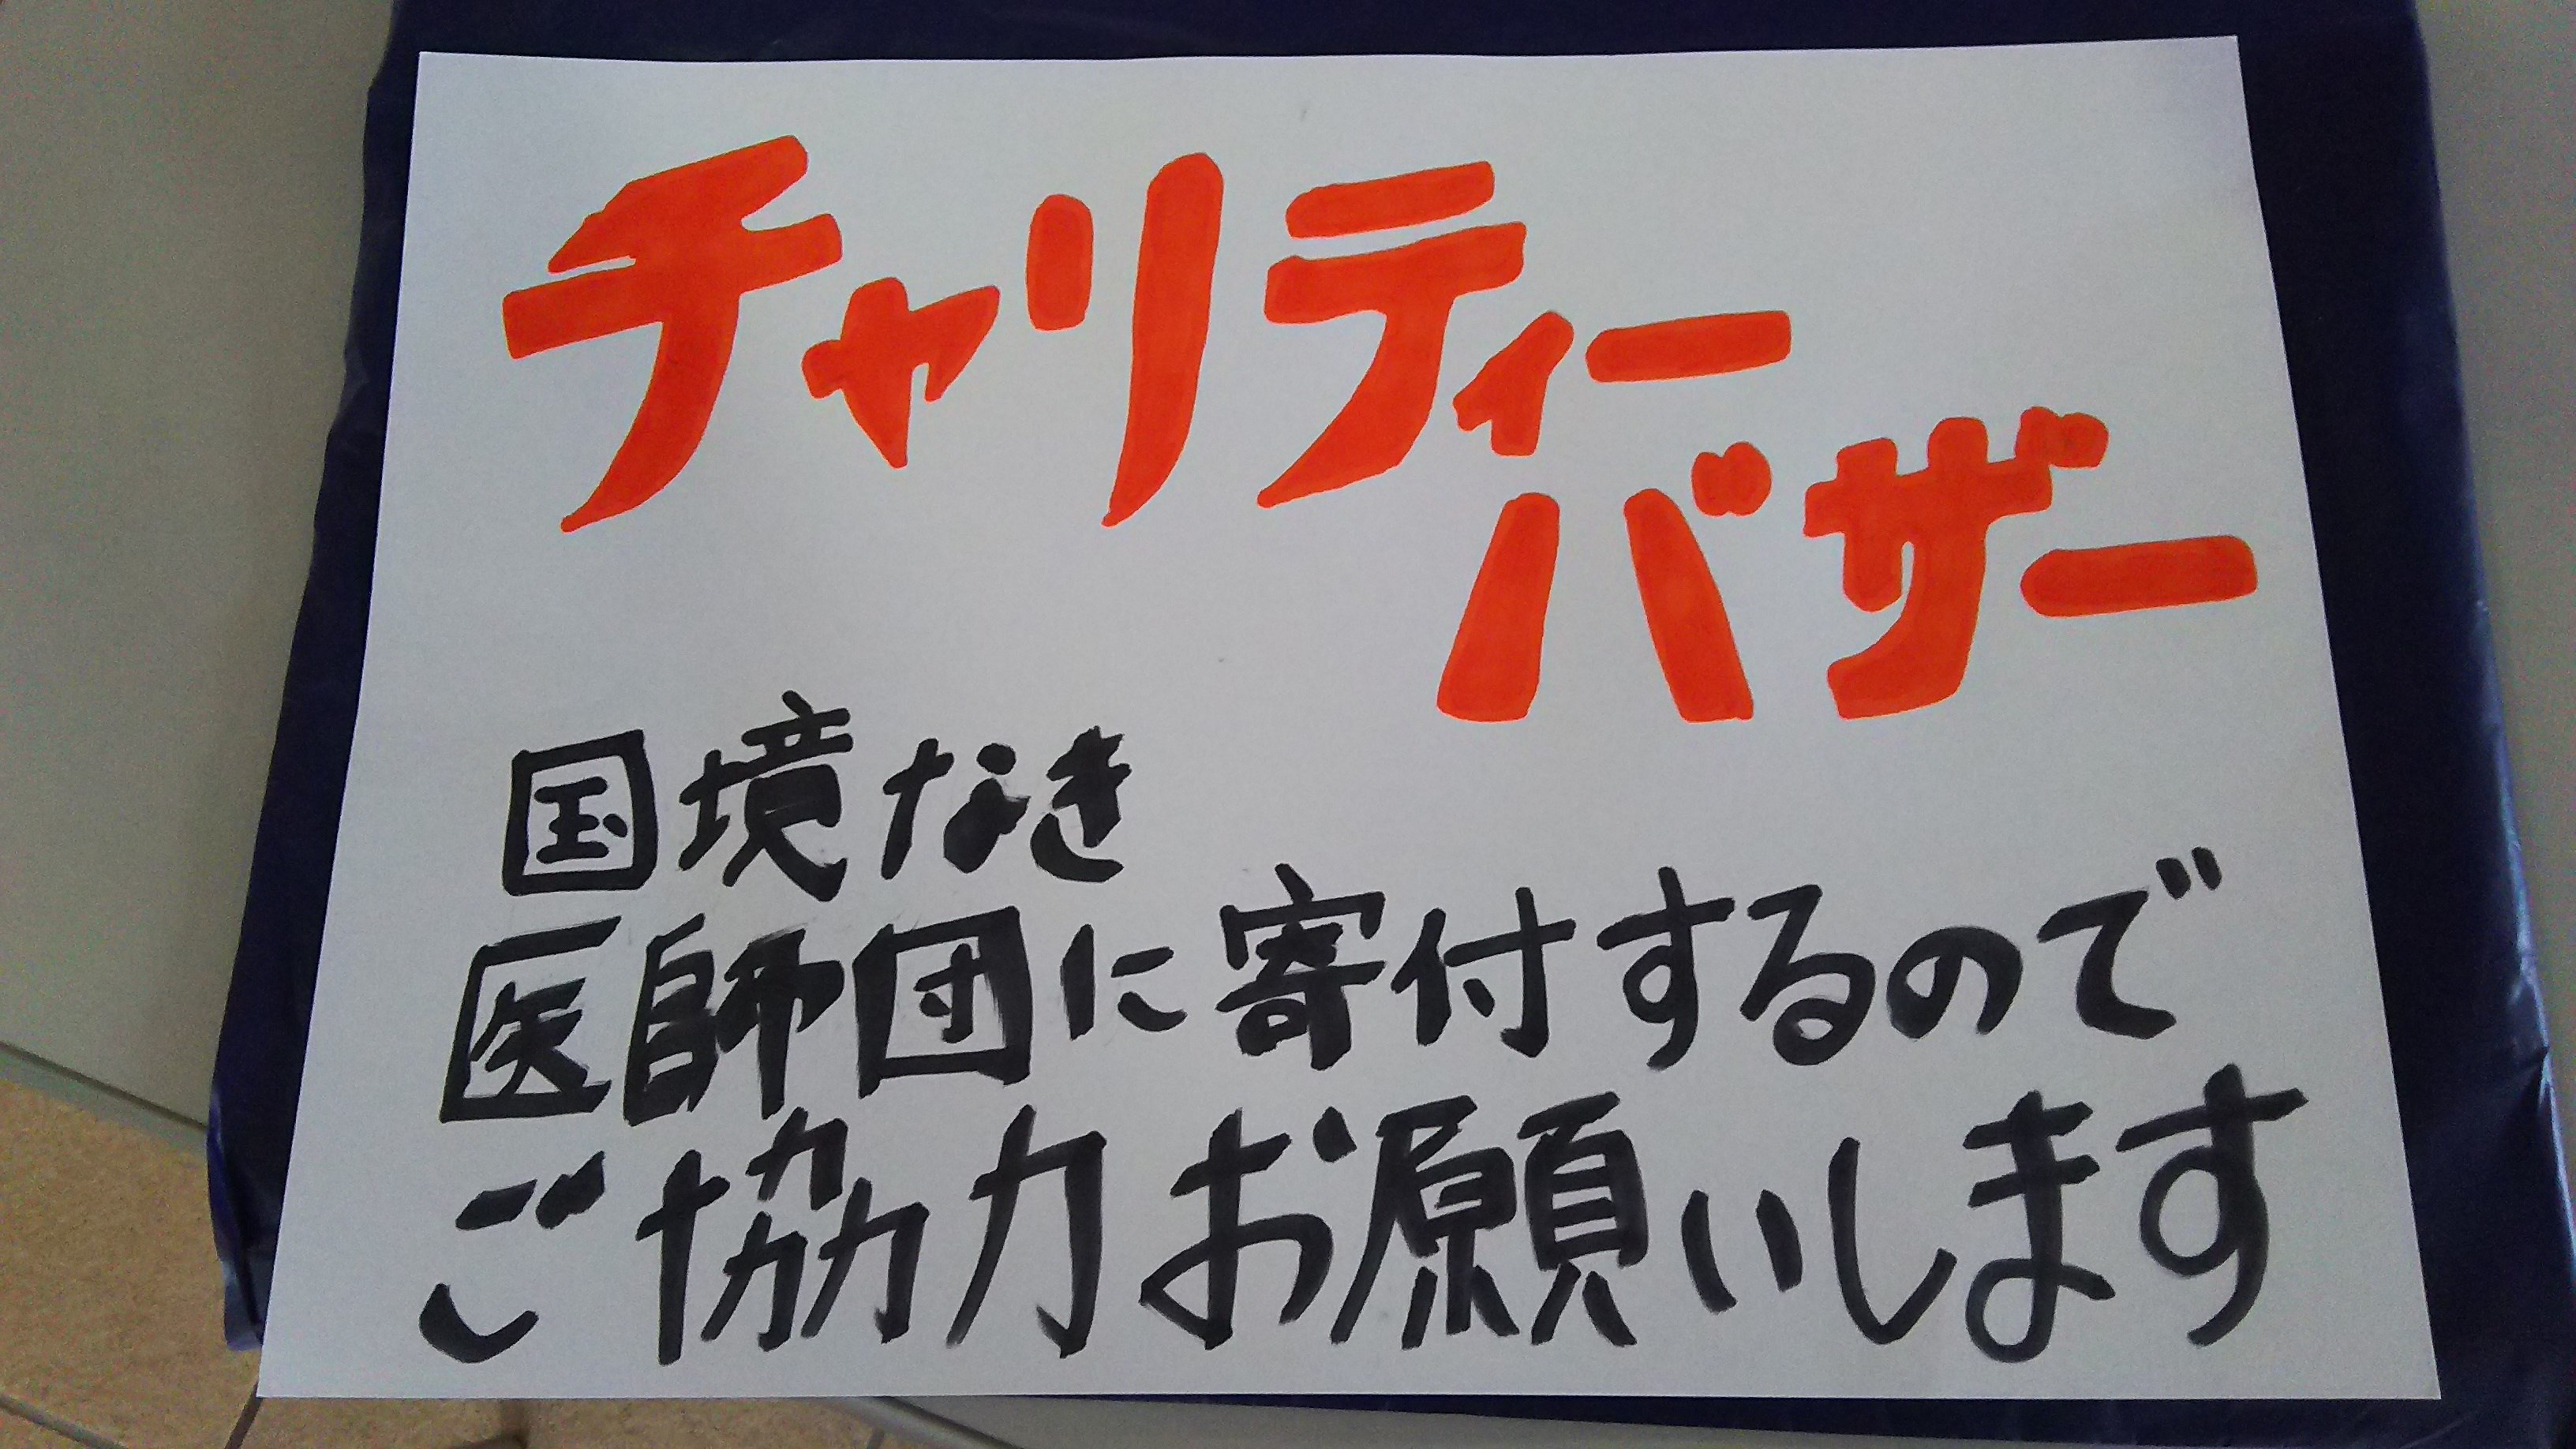 チャリティー
バザー
国境なき
医師団に寄付するので
ご協力お願いします